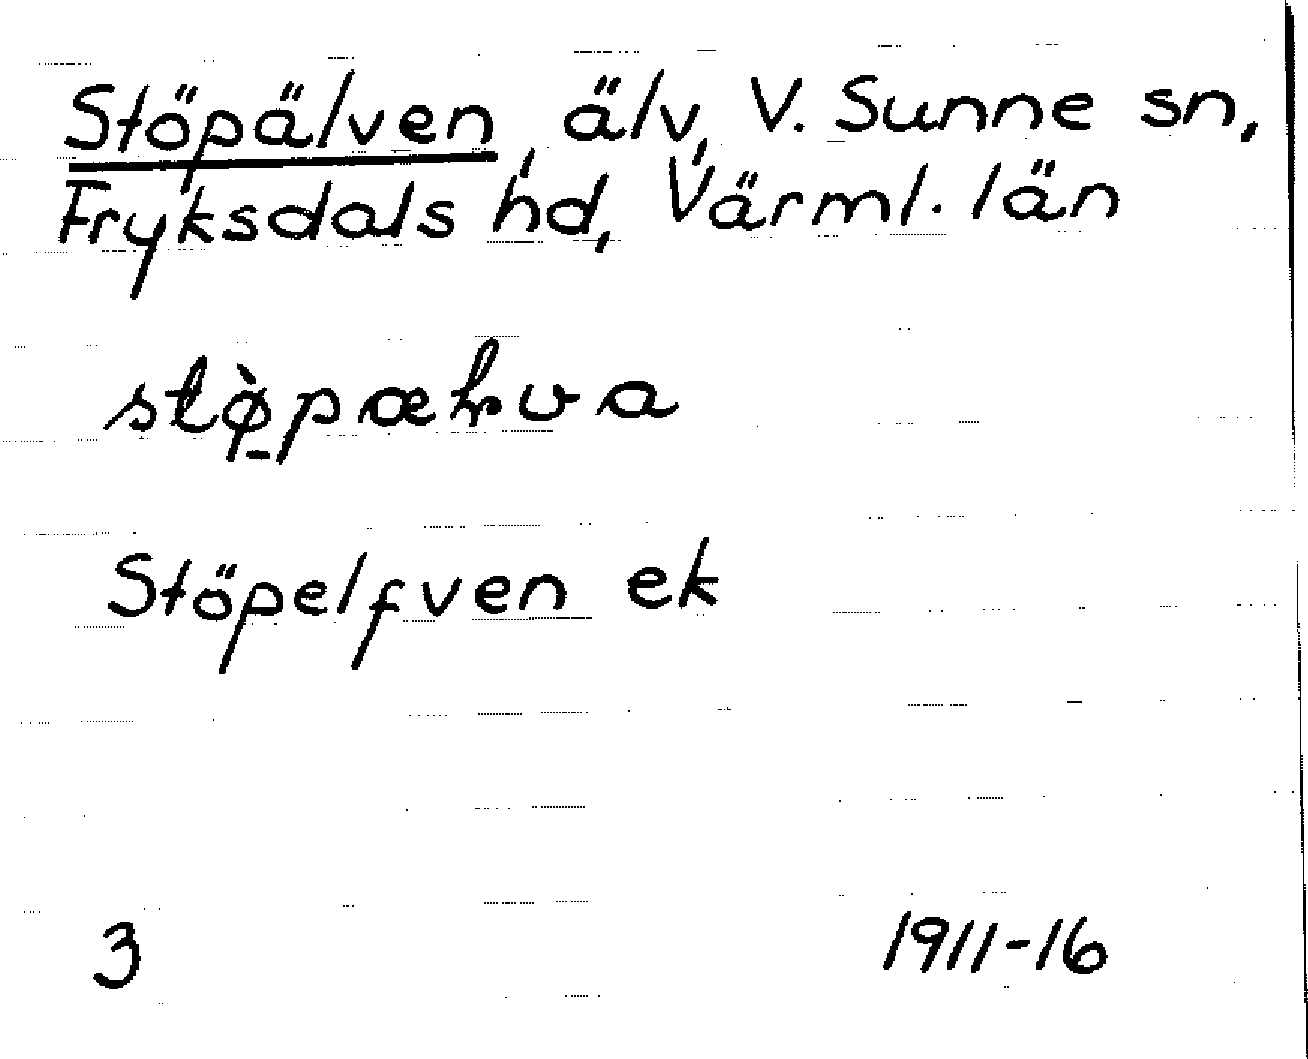 Stöpälven, älv, V. Sunne sn,
Fryksdals hd, Värml. län
Stöpelfven ek
3 1911-16